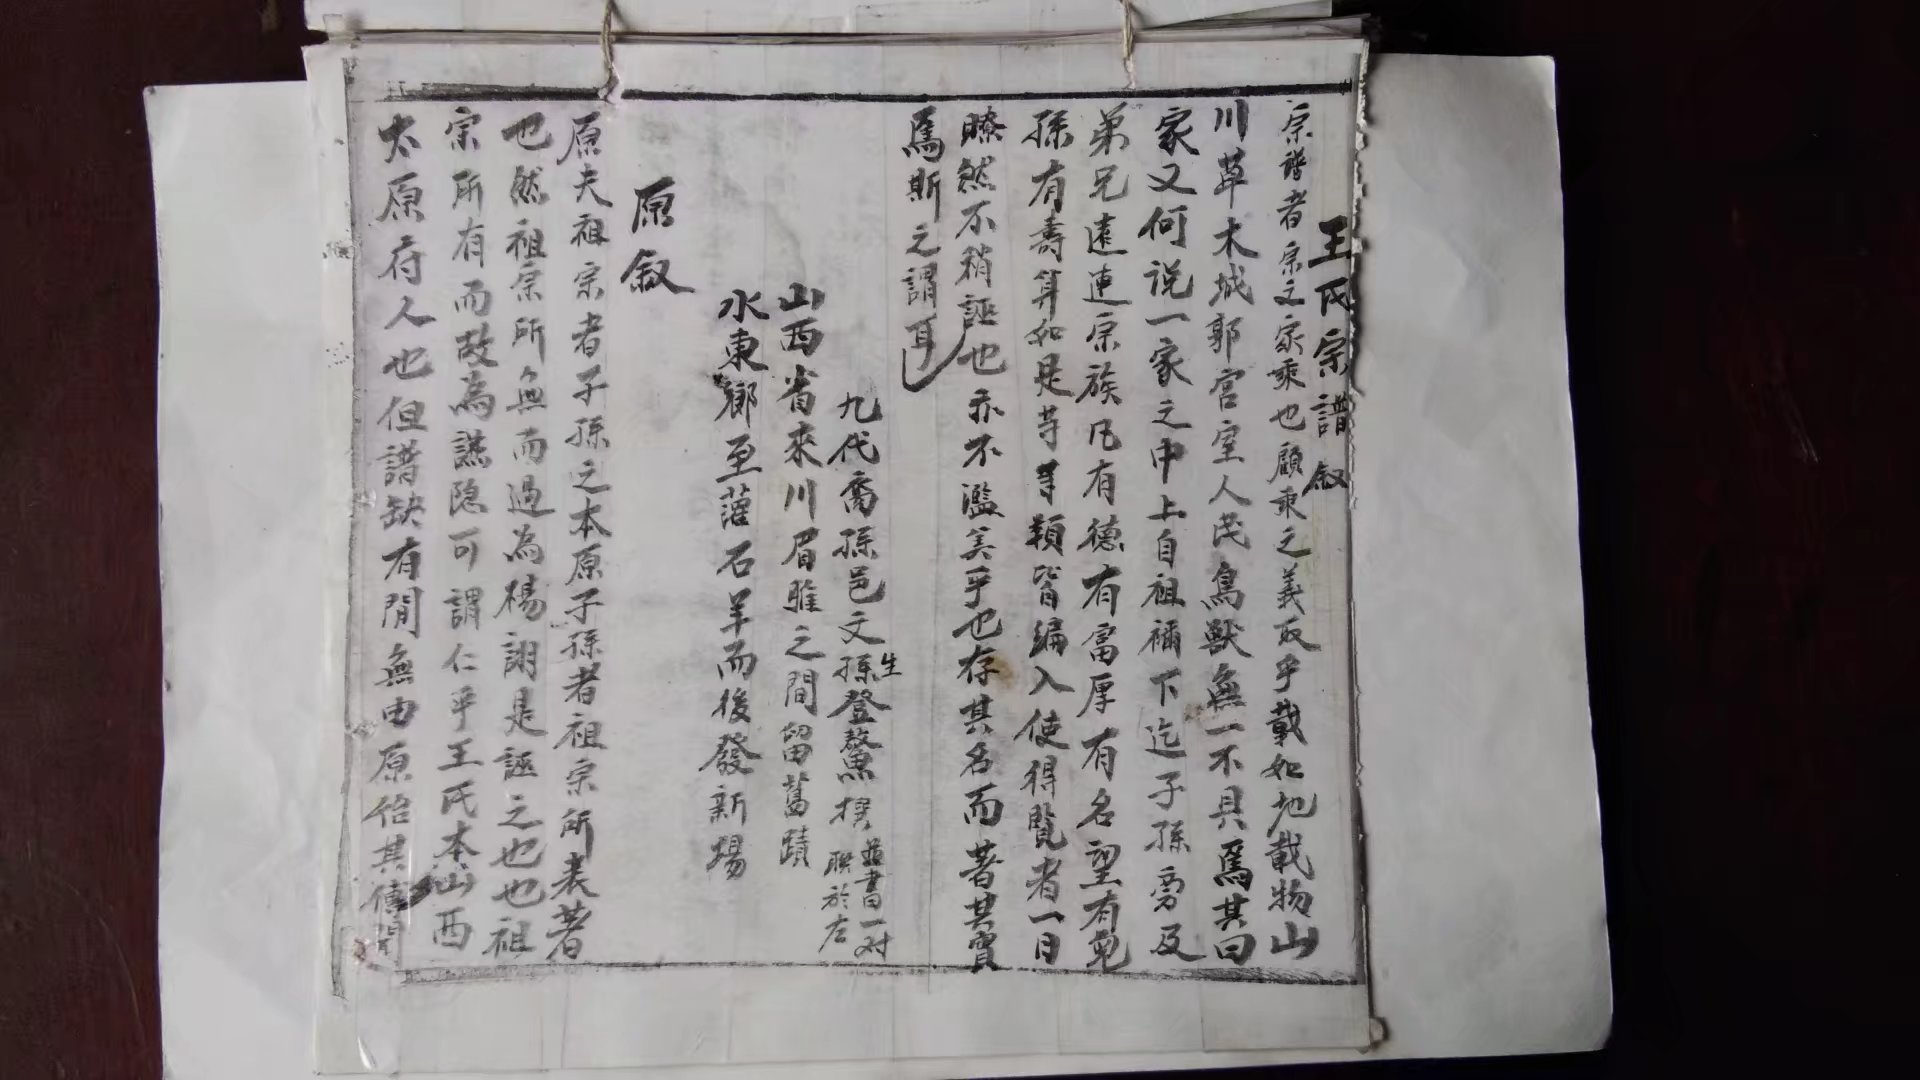 王氏宗譜叙
宗譜者宗之家乘也顧乘之義取乎載如地載物山
川草木城郭宮室人民鳥獸無一不具焉其曰
家又何说一家之中上自祖禰下迄子孫旁及
弟兄遠連宗族凡有德有富厚有名望有
孫有壽算如是等類皆编入使得覽者一目
瞭然不稍誣也亦不濫美乎也存其名而著其實
焉斯之謂耳
九代裔孫邑文生孫登鰲撰並書曰一对聯於左
山西省來川眉雅之間留舊蹟
水東鄉至蘆石羊而後發新場
原叙
原夫祖宗者子孫之本原子孫者祖宗所表著
也然祖宗所無而過為揚謝是誣之也也祖
宗所有而故為謙隐可謂仁乎王氏本山西
太原府人也但譜缺有間無由原佁其傳聞